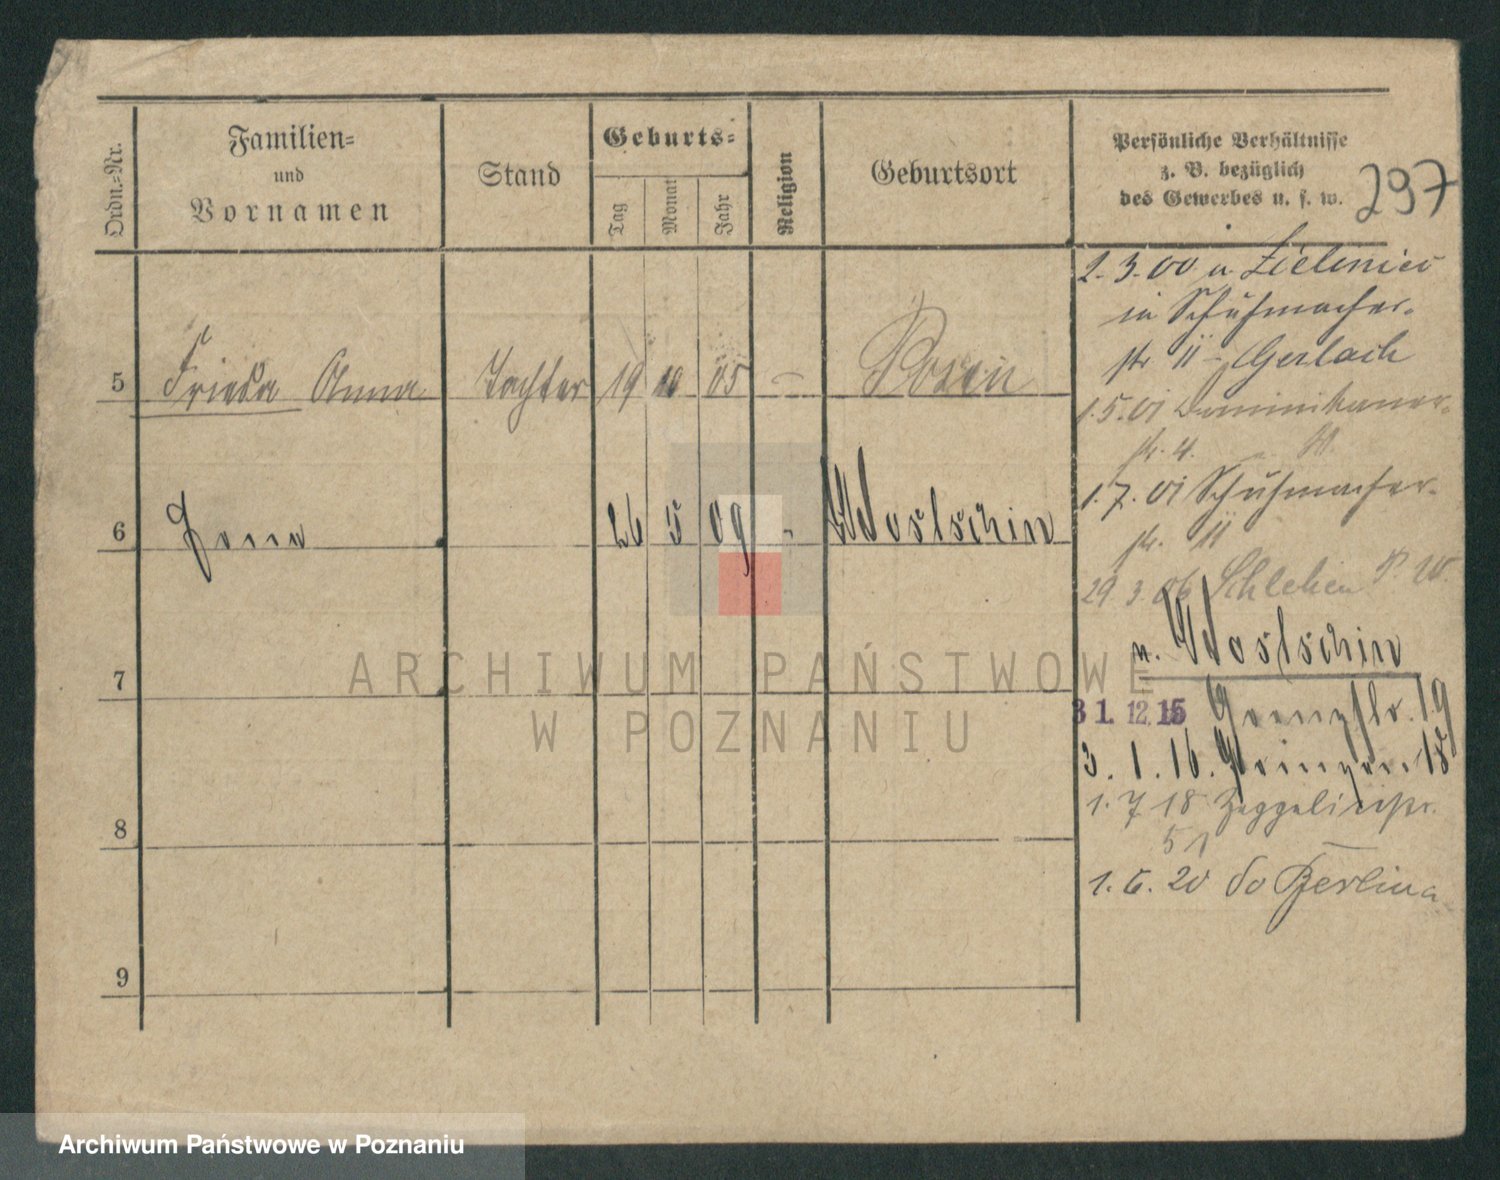 Ordn.-Nr.
Familien-
und
Vornamen
Stand
Geburts-
Tag
Monat
Jahr
Religion
Geburtsort
Persönliche Verhältnisse
z. B. bezüglich
des Gewerbes u. s. w.
297
5 Frieda Anna Tochter 19 10 05 – Posen
6 26 5 09 - Wostschin
7
8
9
2.3.00 u. Zieliniec
in Schuhmacher-
str 11 - Gerlach
1.5.01 Dominikaner-
str. 4.
1.7.01 Schuhmacher-
str. 11
29.3.06 Schlehen P. W.
n. Wostschin
31.12.15 Grenzstr. 19
3.1.16. 18
1.7 18 Zeppelinstr.
51
1.6.20 Berlin
ARCHIWUM PAŃSTWOWE
W POZNANIU
Archiwum Państwowe w Poznaniu